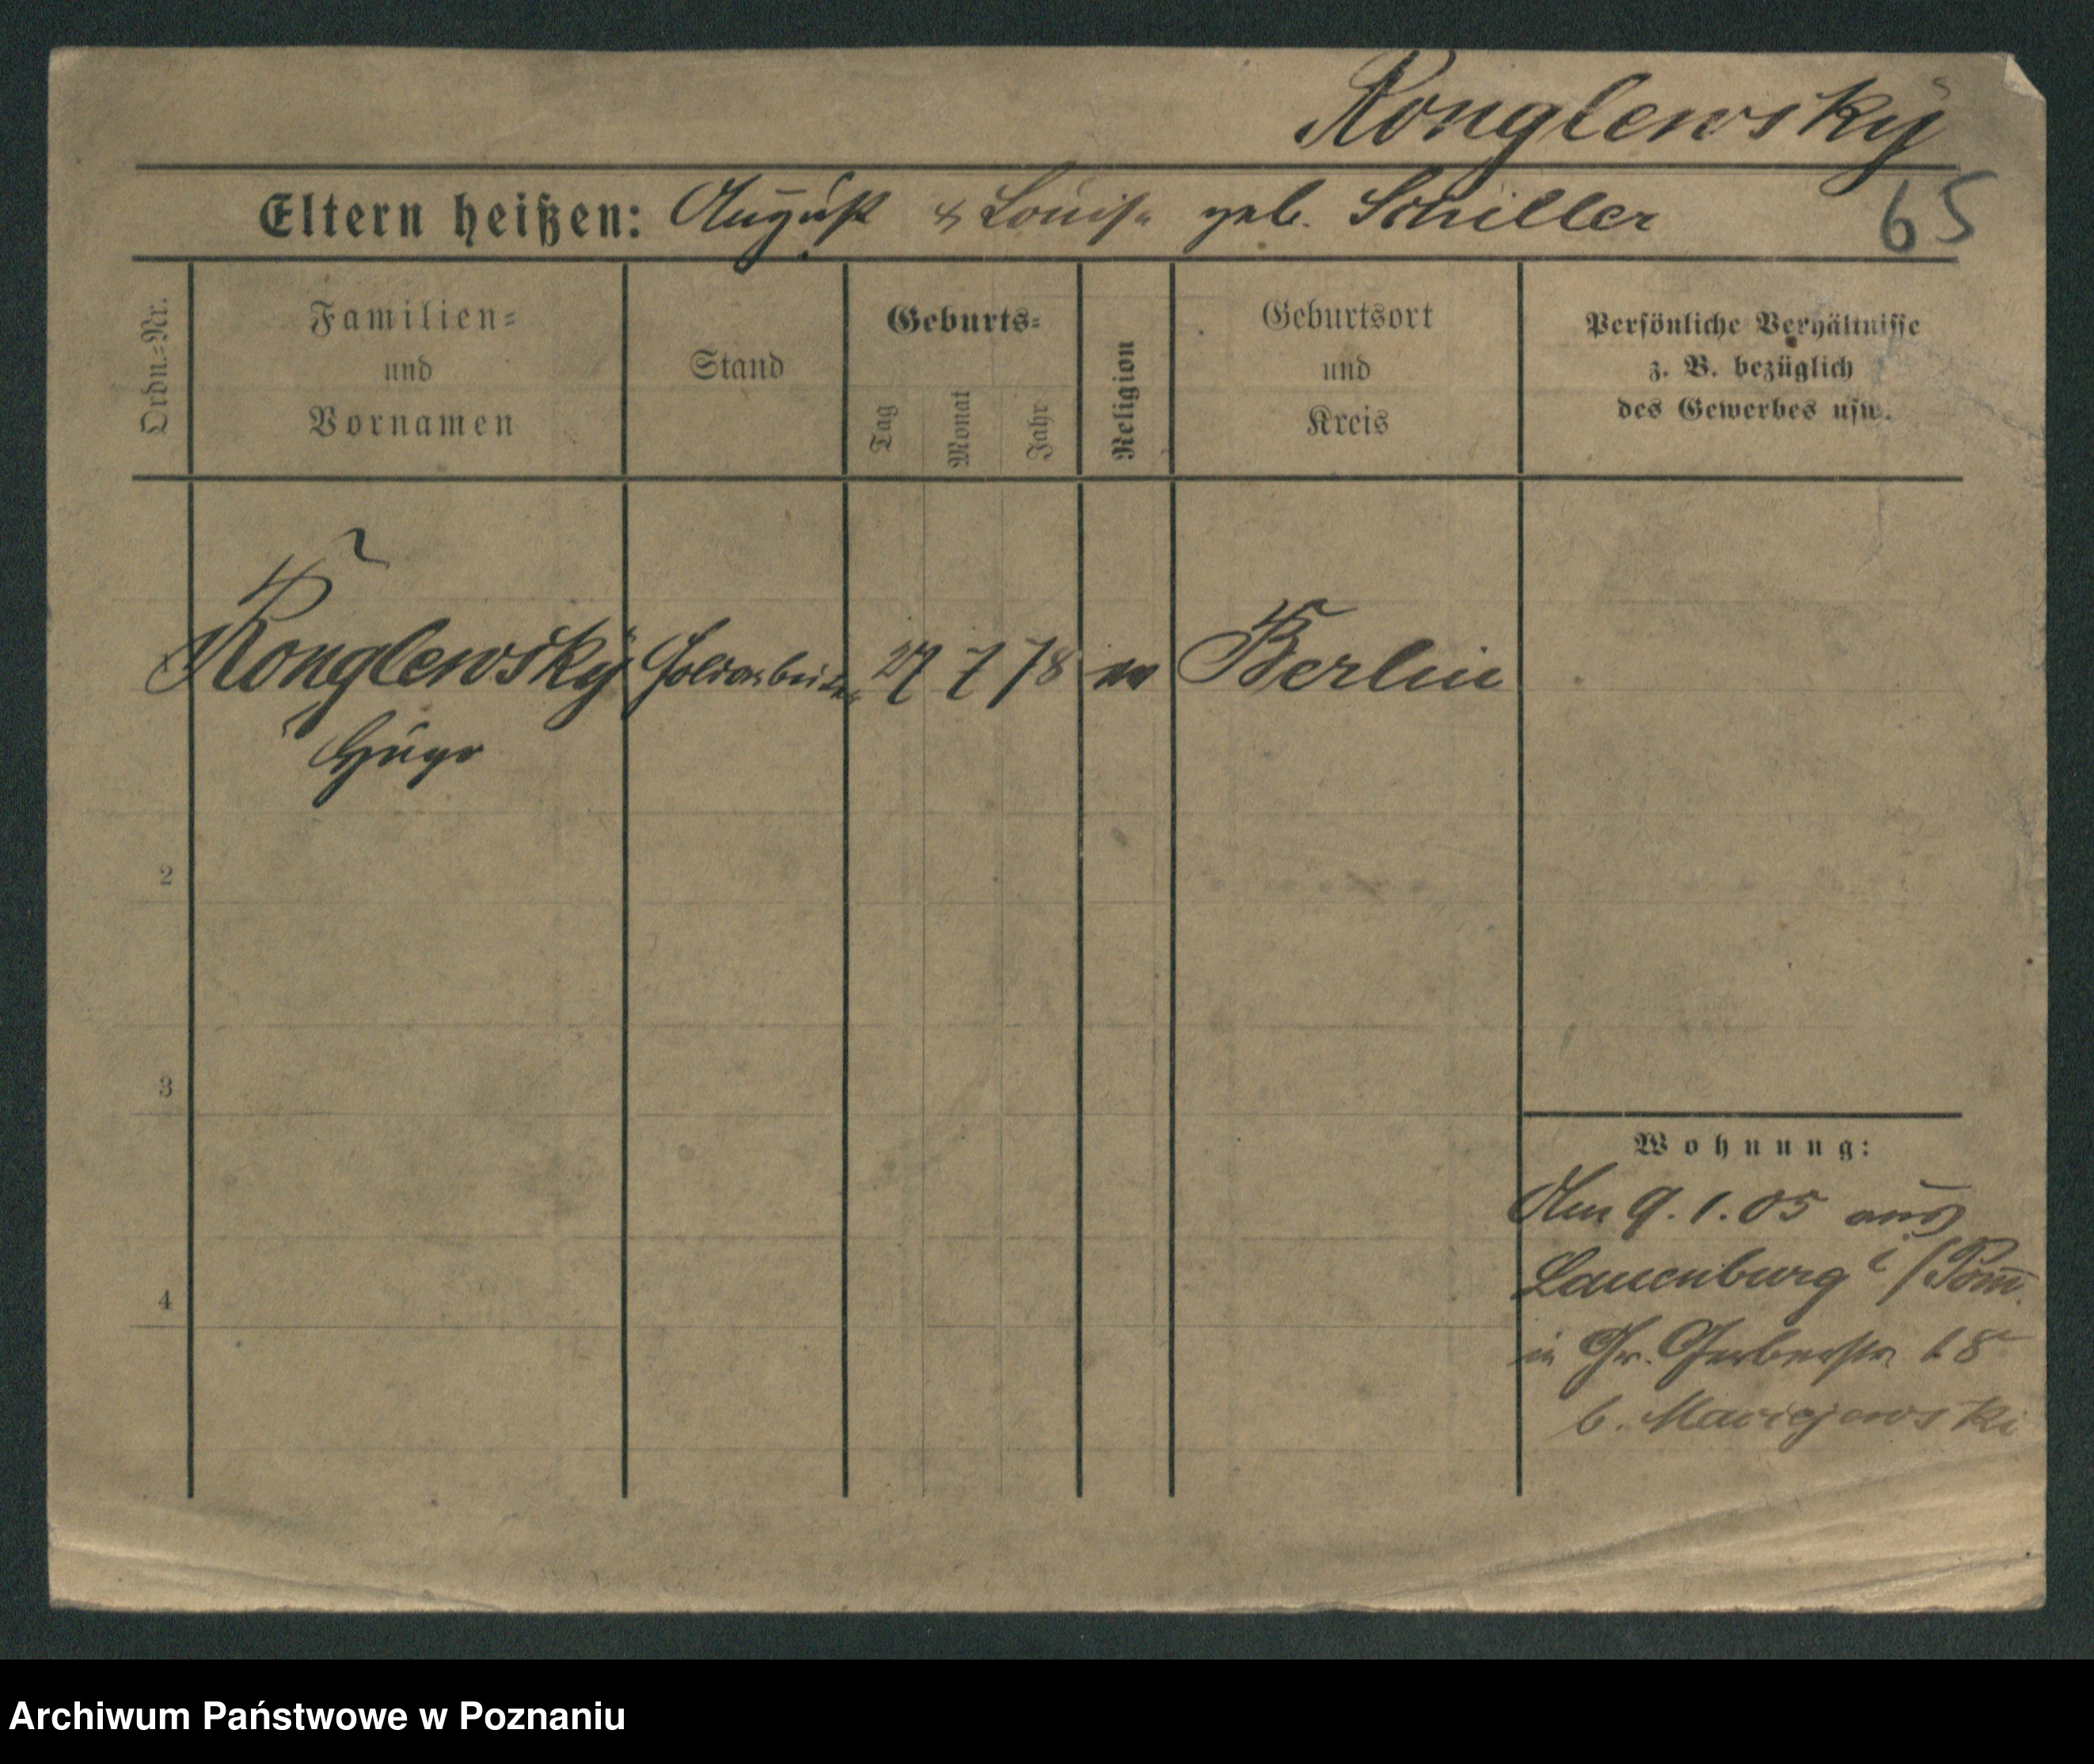 Ronglewsky
65
Eltern heißen: August & Louise geb. Schiller
Ordn.=Nr.
Familien=
und
Vornamen
Stand
Geburts=
Tag
Monat
Jahr
Religion
Geburtsort
und
Kreis
Persönliche Verhältnisse
z. B. bezüglich
des Gewerbes usw.
Ronglewsky Goldarbeiter 27 7 78 Berlin
Hugo
2
3
4
Wohnung:
Am 9. 1. 05 aus
Lauenburg i/Pom̄.
in Gr. Gerberstr. 18
b. Maciejewski
Archiwum Państwowe w Poznaniu